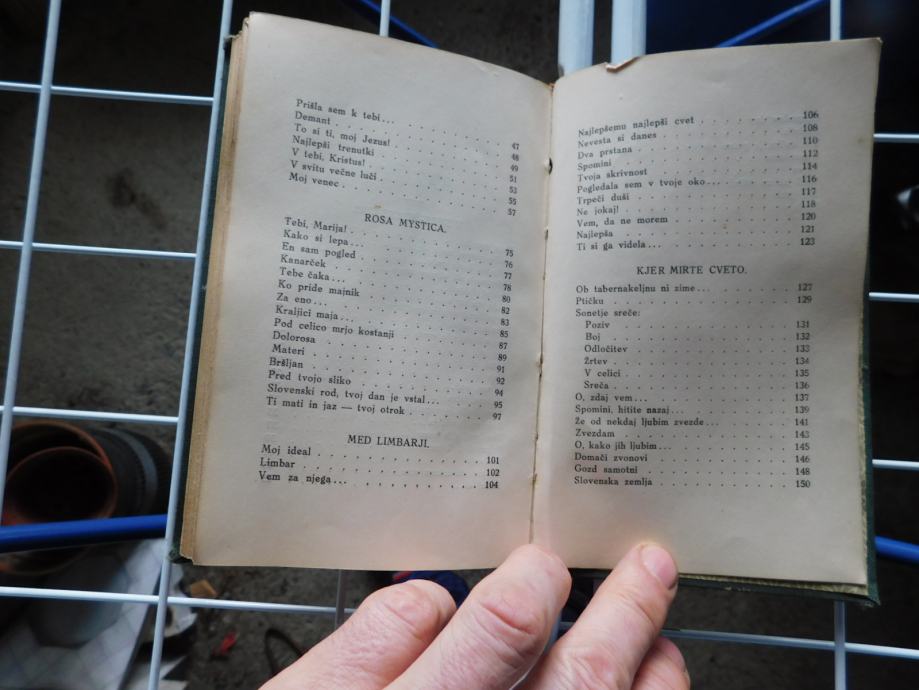 Prišla sem k tebi... 47
Demant 48
To si ti, moj Jezus! 49
Najlepši trenutki 51
V tebi, Kristus! 53
V svitu večne luči 55
Moj venec 57
ROSA MYSTICA.
Tebi, Marija! 75
Kako si lepa... 76
En sam pogled 77
Kanarček 78
Tebe čaka... 80
Ko pride majnik 82
Za eno... 83
Kraljici maja... 85
Pod celico mrjo kostanji 87
Dolorosa 89
Materi 91
Bršljan 92
Pred tvojo sliko 94
Slovenski rod, tvoj dan je vstal... 95
Ti mati in jaz — tvoj otrok 97
MED LIMBARJI.
Moj ideal 101
Limbar 102
Vem za njega... 104
Najlepšemu najlepši cvet 106
Nevesta si danes 108
Dva prstana 110
Spomini 112
Tvoja skrivnost 114
Pogledala sem v tvoje oko... 116
Trpeči duši 117
Ne jokaj! 118
Vem, da ne morem 120
Najlepša 121
Ti si ga videla... 123
KJER MIRTE CVETO.
Ob tabernakeljnu ni zime... 127
Ptičku 129
Sonetje sreče:
Poziv 131
Boj 132
Odločitev 133
Žrtev 134
V celici 135
Sreča 136
O, zdaj vem... 137
Spomini, hitite nazaj... 139
Že od nekdaj ljubim zvezde... 141
Zvezdam 143
O, kako jih ljubim... 145
Domači zvonovi 146
Gozd samotni 148
Slovenska zemlja 150